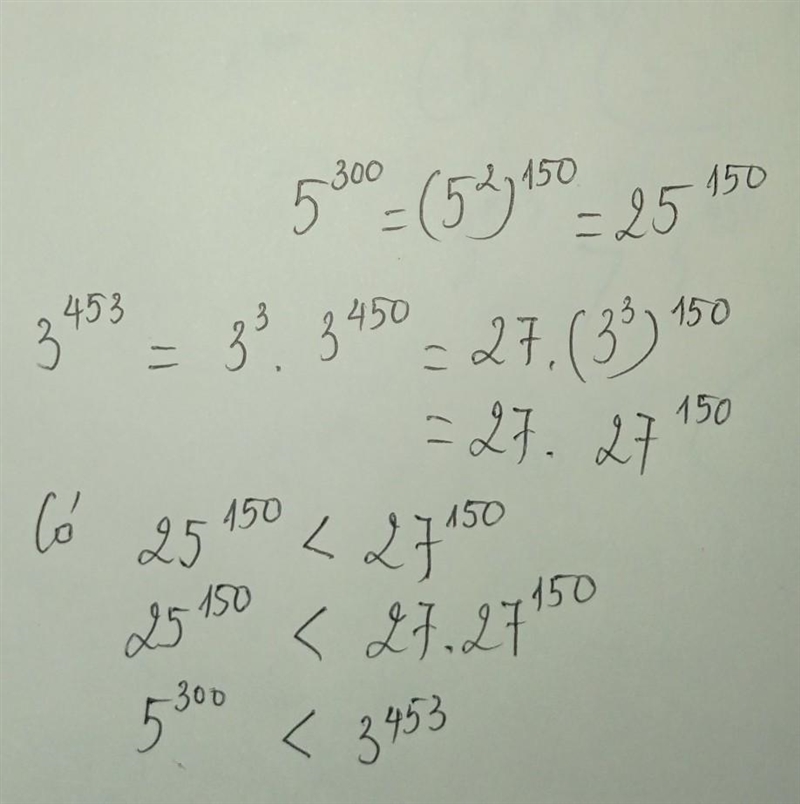 5³⁰⁰ = (5²)¹⁵⁰ = 25¹⁵⁰
3⁴⁵³ = 3³ . 3⁴⁵⁰ = 27 . (3³)¹⁵⁰
= 27 . 27¹⁵⁰
Có 25¹⁵⁰ < 27¹⁵⁰
25¹⁵⁰ < 27 . 27¹⁵⁰
5³⁰⁰ < 3⁴⁵³